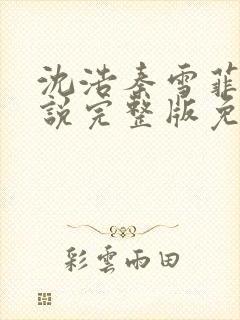 沈浩秦雪菲
說完整版免
彩雲雨田